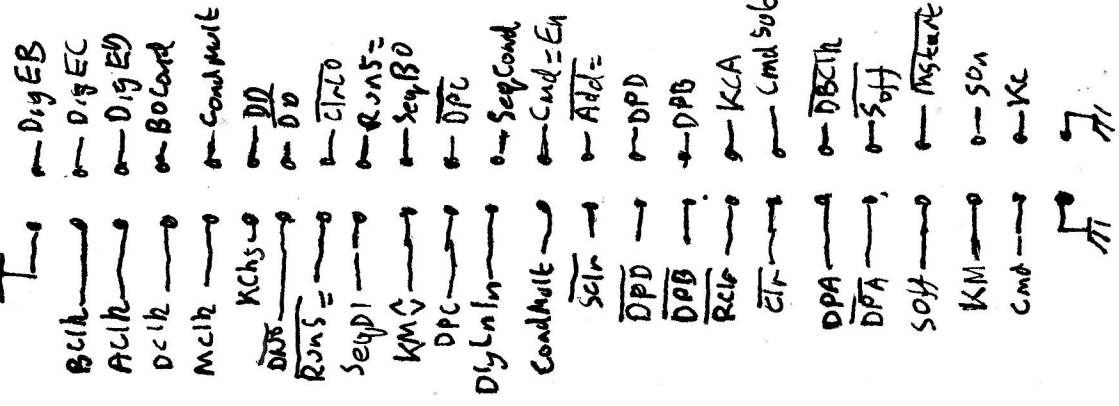 DigEB
DigEC
DigED
BOCond
CondMult
D̅D̅
DD
C̅l̅r̅C̅O̅
RunS=
SeqBO
D̅P̅C̅
SeqCond
Cmd=En
A̅d̅d̅=
DPD
DPB
KCA
D̅B̅C̅l̅k̅
S̅o̅f̅f̅
Son
Kc
BClk
AClk
DClk
MClk
KChS
R̅u̅n̅S̅=
SeqDI
KM
DPC
DlyLnIn
CondMult
S̅C̅l̅r̅
D̅P̅D̅
D̅P̅B̅
R̅C̅l̅r̅
C̅l̅r̅
DPA
D̅P̅A̅
SOff
KM
Cmd